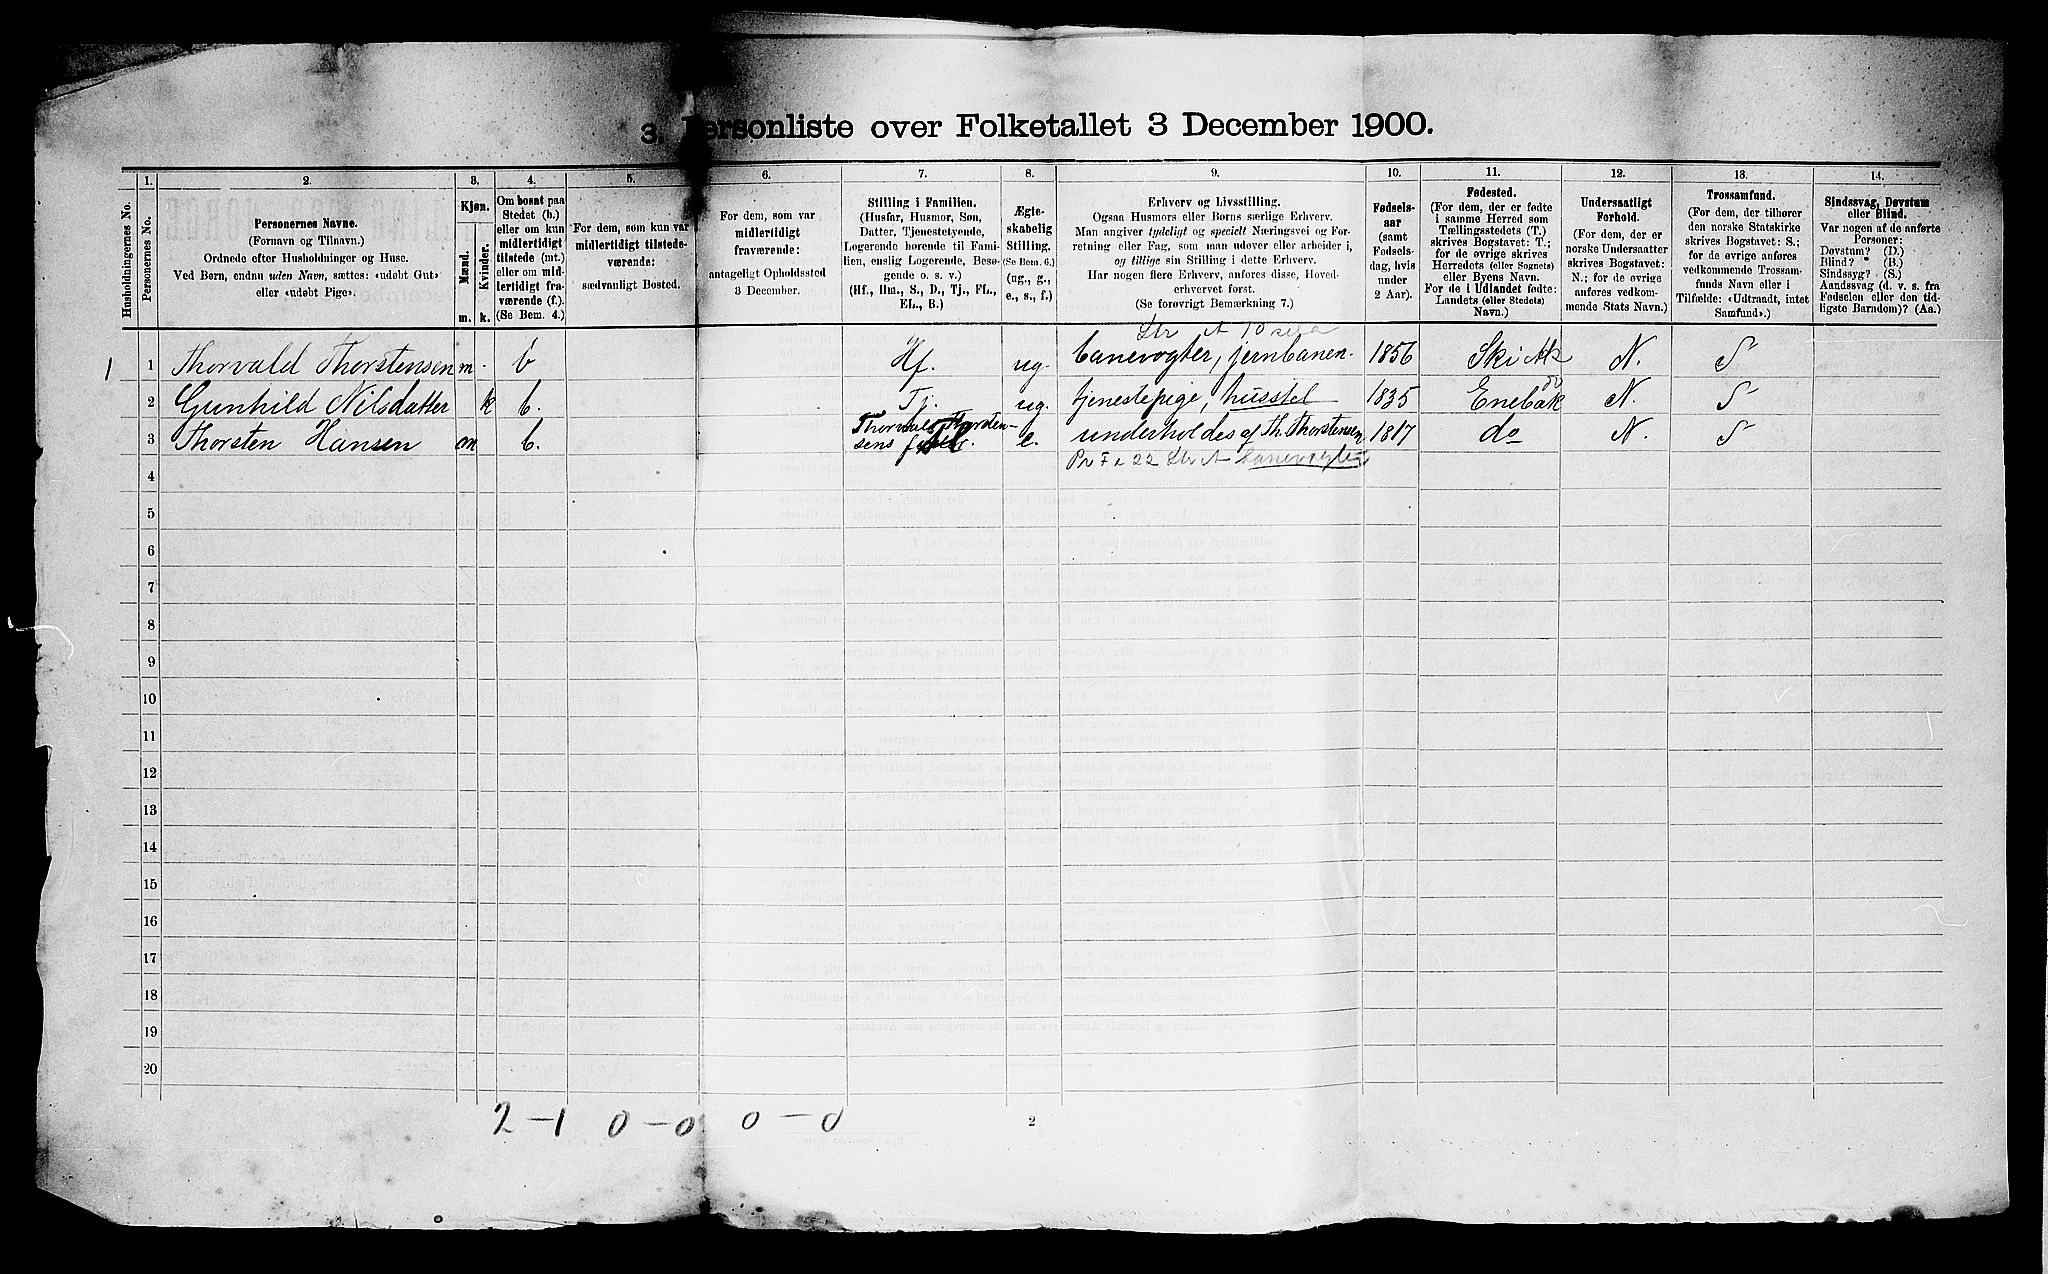 3. Personliste over Folketallet 3 December 1900.
Husholdningernes No.
1.
Personernes No.
2.
Personernes Navne.
(Fornavn og Tilnavn.)
Ordnede efter Husholdninger og Huse.
Ved Børn, endnu uden Navn, sættes: «udøbt Gut»
eller «udøbt Pige».
3.
Kjøn.
Mænd.
Kvinder.
m. k.
4.
Om bosat paa
Stedet (b.)
eller om kun
midlertidigt
tilstede (mt.)
eller om mid-
lertidigt fra-
værende (f.).
(Se Bem. 4.)
5.
For dem, som kun var
midlertidigt tilstede-
værende:
sædvanligt Bosted.
6.
For dem, som var
midlertidigt
fraværende:
antageligt Opholdssted
3 December.
7.
Stilling i Familien.
(Husfar, Husmor, Søn,
Datter, Tjenestetyende,
Logerende hørende til Fami-
lien, enslig Logerende, Besø-
gende o. s. v.)
(Hf., Hm., S., D., Tj., FL.,
EL., B.)
8.
Ægte-
skabelig
Stilling.
(Se Bem. 6.)
(ug., g.,
e., s., f.)
9.
Erhverv og Livsstilling.
Ogsaa Husmors eller Børns særlige Erhverv.
Man angiver tydeligt og specielt Næringsvei og For-
retning eller Fag, som man udøver eller arbeider i,
og tillige sin Stilling i dette Erhverv.
Har nogen flere Erhverv, anføres disse, Hoved-
erhvervet først.
(Se forøvrigt Bemærkning 7.)
10.
Fødsels-
aar
(samt
Fødsels-
dag, hvis
under
2 Aar).
11.
Fødested.
(For dem, der er fødte
i samme Herred som
Tællingsstedets (T.)
skrives Bogstavet: T.;
for de øvrige skrives
Herredets (eller Sognets)
eller Byens Navn.
For de i Udlandet fødte:
Landets (eller Stedets)
Navn.)
12.
Undersaatligt
Forhold.
(For dem, der er
norske Undersaatter
skrives Bogstavet:
N.; for de øvrige
anføres vedkom-
mende Stats Navn.)
13.
Trossamfund.
(For dem, der tilhører
den norske Statskirke
skrives Bogstavet: S.;
for de øvrige anføres
vedkommende Trossam-
funds Navn eller i
Tilfælde: «Udtraadt, intet
Samfund».)
14.
Sindssvag, Døvstum
eller Blind.
Var nogen af de anførte
Personer:
Døvstum? (D.)
Blind? (B.)
Sindssyg? (S.)
Aandssvag (d. v. s. fra
Fødselen eller den tid-
ligste Barndom)? (Aa.)
1 1 Thorvald Thorstensen m. b Hf. ug. banevogter, jernbanen. 1856 Ski N. S
2 Gunhild Nilsdatter k b. Tj. ug. tjenestepige, husstel 1835 Enebak N. S
3 Thorsten Hansen m b. Thorvald Thorsten-
sens e. underholdes af Th. Thorstensen 1817 do N. S
4
5
6
7
8
9
10
11
12
13
14
15
16
17
18
19
20
2-1 0-0 0-0
2